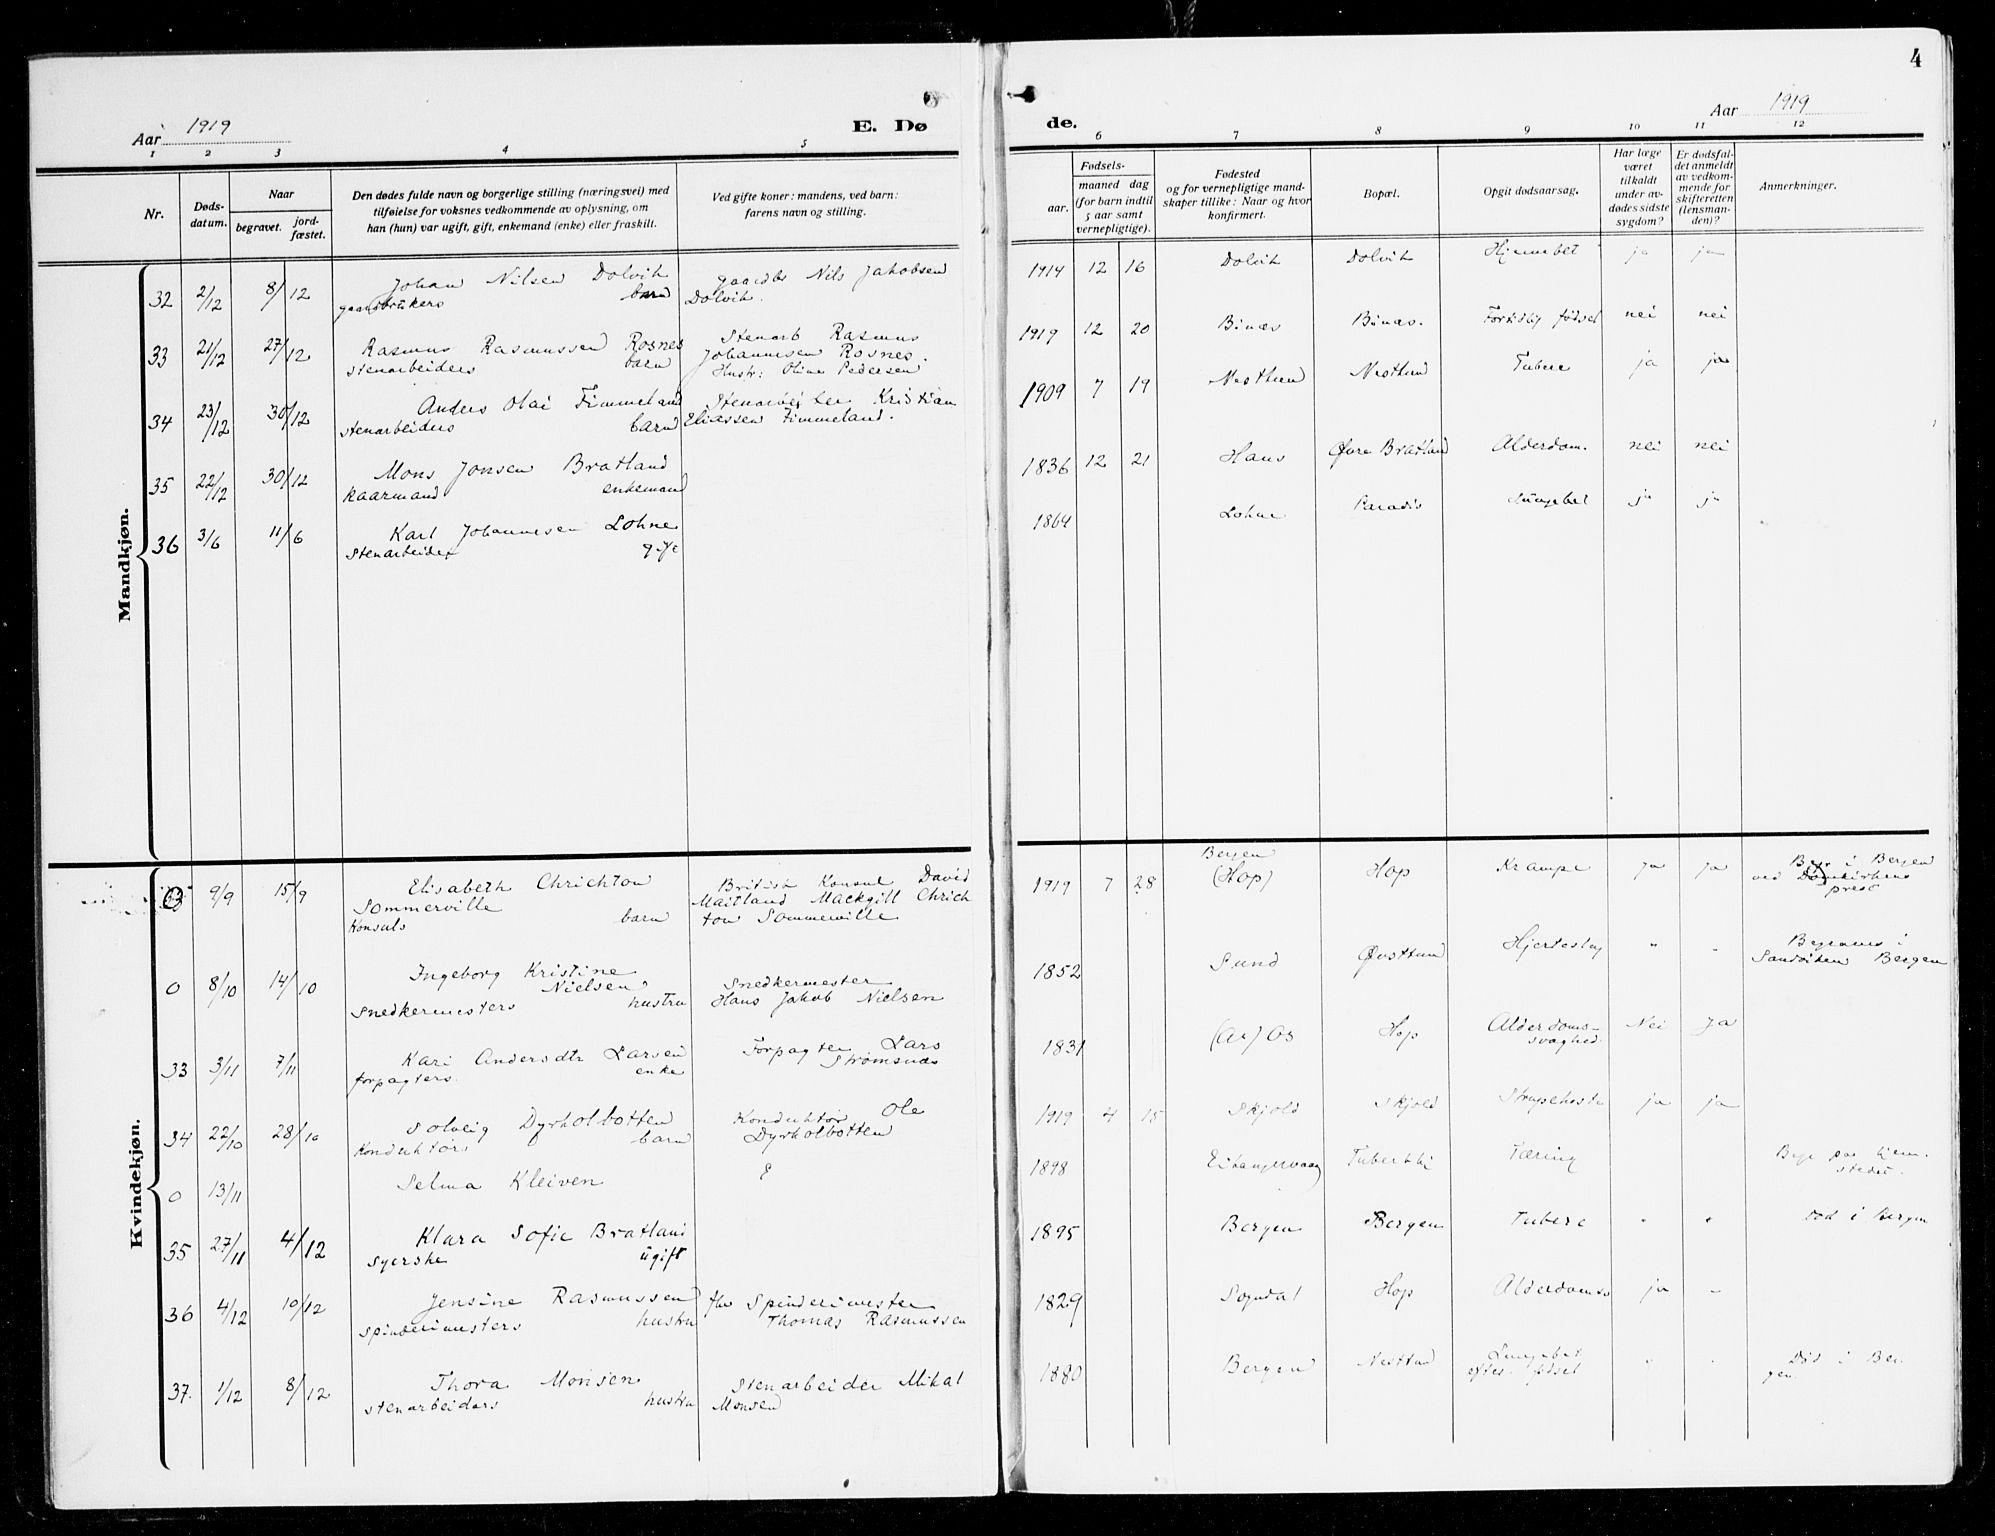 4
Aar 1919
E. Dø
de.
Aar 1919
1 2 3 4 5
6 7 8 9 10 11 12
Nr.
Døds-
datum.
Naar
begravet.
jord-
fæstet.
Den dødes fulde navn og borgerlige stilling (næringsvei) med
tilføielse for voksnes vedkommende av oplysning, om
han (hun) var ugift, gift, enkemand (enke) eller fraskilt.
Ved gifte koner: mandens, ved barn:
farens navn og stilling.
Fødsels-
aar.
maaned dag
(for barn indtil
5 aar samt
vernepligtige).
Fødested
og for vernepligtige mand-
skaper tillike: Naar og hvor
konfirmert.
Bopæl.
Opgit dødsaarsag.
Har læge
været
tilkaldt
under av-
dødes sidste
sygdom?
Er dødsfal-
det anmeldt
av vedkom-
mende for
skifteretten
(lensman-
den)?
Anmerkninger.
Mandkjøn.
32 2/12 8/12 Johan Nilsen Dolvik gaardbr Nils Jakobsen 1914 12 16 Dolvik Dolvik ja ja
gaardbrukers barn Dolvik.
33 21/12 27/12 Rasmus Rasmussen Rosnes Stenarb Rasmus 1919 12 20 Bønæs Bønæs. Fortidlig fødsel nei nei
stenarbeiders barn Johannesen Rosnes.
Hustr: Oline Pedersen
34 23/12 30/12 Anders Olai Fimmeland Stenarbeider Kristian 1909 7 19 Nesttun Nesttun Tuberc ja ja
stenarbeiders barn Eliassen Fimmeland.
35 22/12 30/12 Mons Jonsen Bratland 1836 12 21 Haus Øvre Bratland Alderdom. nei nei
kaarmand enkemand
36 3/6 11/6 Karl Johannesen Lohne 1864 Lohne Paradis ja ja
stenarbeider gift
Kvindekjøn.
9/9 15/9 Elisabeth Chrichton British Konsul David 1919 7 28 Bergen Hop Krampe ja ja Begr i Bergen
Sommerville Maitland Mackgill Chrich (Hop) ved Domkirkens
Konsuls barn ton Sommerville prest
0 8/10 14/10 Ingeborg Kristine Snedkermester 1852 Sund Øvsttun Hjerteslag " " Begraves i
Nielsen Hans Jakob Nielsen Sandviken Bergen
snedkermesters hustru
33 3/11 7/11 Kari Andersdtr Larsen Forpagter Lars 1831 Os Hop Alderdoms- Nei Ja
forpagters enke Strømsnæs svaghed.
34 22/10 28/10 Solveig Dyrholbotten Konduktør Ole 1919 4 15 Skjold Skjold Strupehoste ja ja
Konduktørs barn Dyrholbotten
0 13/11 Selma Kleiven 1898 Eikangervaag Tuberkhj Tæring Begr paa hjem-
stedet.
35 27/11 4/12 Klara Sofie Bratland 1895 Bergen Bergen Tuberc " " Død i Bergen
syerske ugift
36 4/12 10/12 Jensine Rasmussen fhv Spinderimester 1829 Sogndal Hop Alderdomsv ja -
spinderimesters hustru Thomas Rasmussen
37. 1/12 8/12 Thora Monsen Stenarbeider Mikal 1880 Bergen Nesttun Lungebet " " Død i Ber-
stenarbeiders hustru Monsen efter fødsel gen.